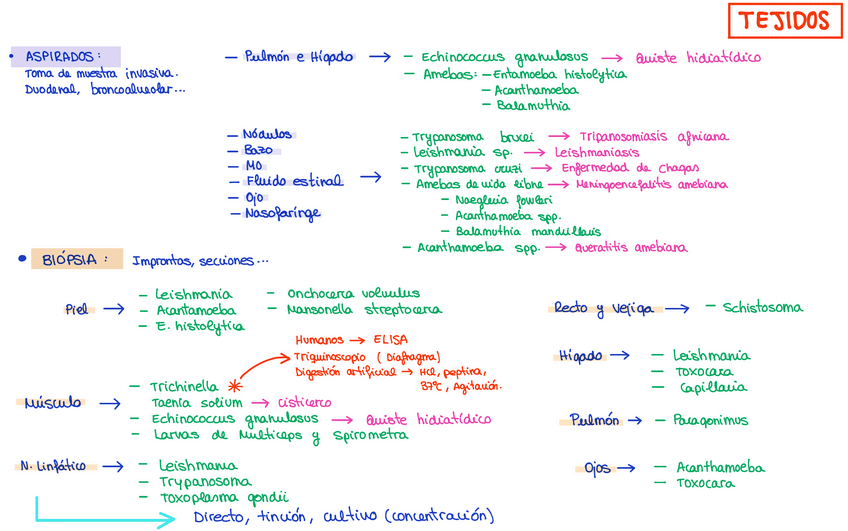 TEJIDOS
• ASPIRADOS:
Toma de muestra invasiva.
Duodenal, broncoalveolar...
— Pulmón e Hígado → — Echinococcus granulosus → Quiste hidiatídico
— Amebas: — Entamoeba histolytica
— Acanthamoeba
— Balamuthia
— Nódulos
— Bazo
— MO
— Fluido estinal →
— Ojo
— Nasofaringe
— Trypanosoma brucei → Tripanosomiasis africana
— Leishmania sp. → Leishmaniasis
— Trypanosoma cruzi → Enfermedad de Chagas
— Amebas de vida libre → Meningoencefalitis amebiana
— Naegleria fowleri
— Acanthamoeba spp.
— Balamuthia mandrillaris
— Acanthamoeba spp. → Queratitis amebiana
• BIÓPSIA: Improntas, secciones...
Piel → — Leishmania
— Acantamoeba
— E. histolytica
— Onchocerca volvulus
— Mansonella streptocerca
Músculo → — Trichinella *
Humanos → ELISA
Triquinoscopio (Diafragma)
Digestión artificial → HCl, peptina,
37ºC, Agitación.
Taenia solium → cisticerco
— Echinococcus granulosus → Quiste hidiatídico
— Larvas de Multiceps y Spirometra
N. Linfático → — Leishmania
— Trypanosoma
— Toxoplasma gondii
Directo, tinción, cultivo (concentración)
Recto y Vejiga → — Schistosoma
Hígado → — Leishmania
— Toxocara
— Capillaria
Pulmón → — Paragonimus
Ojos → — Acanthamoeba
— Toxocara